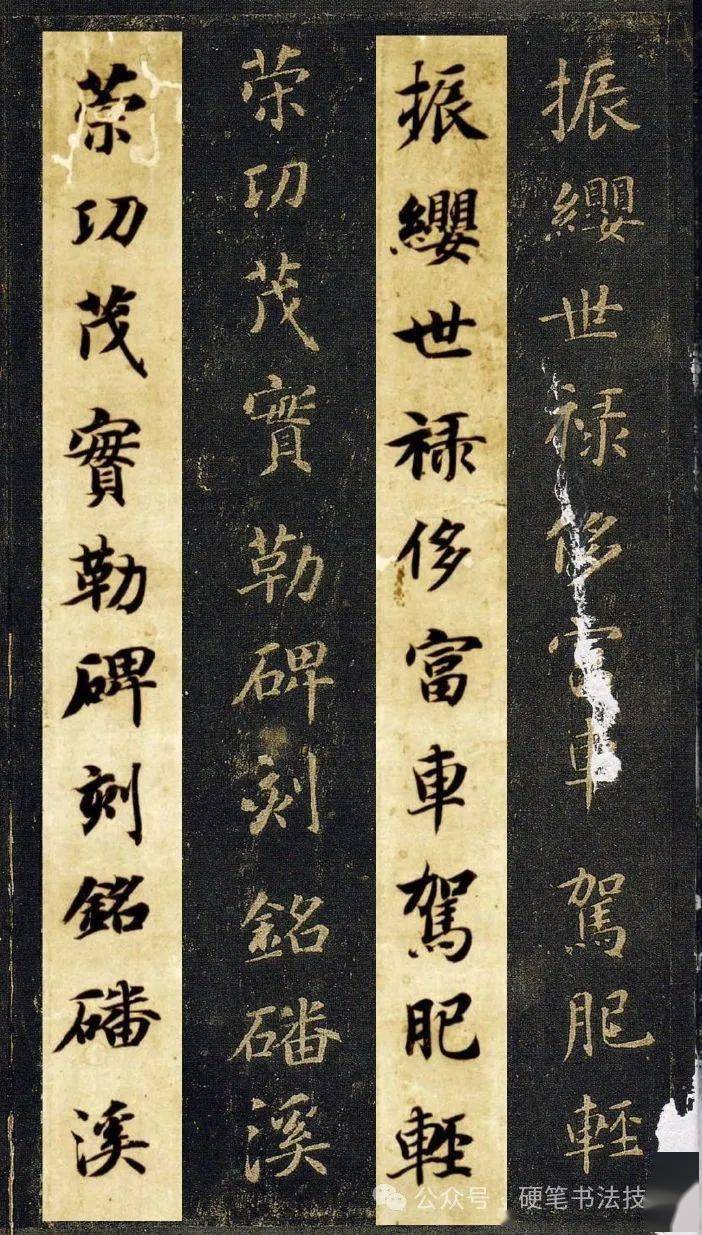 振纓世禄侈富車駕肥輕
振纓世禄侈富車駕肥輕
策功茂實勒碑刻銘磻溪
策功茂實勒碑刻銘磻溪
公众号 · 硬笔书法技